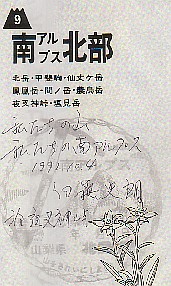 9
南アルプス北部
北岳・甲斐駒・仙丈ケ岳
鳳凰岳・間ノ岳・農鳥岳
夜叉神峠・塩見岳
私たちの山
私たちの南アルプス
1992.10.4
於夜叉神峠
山梨県